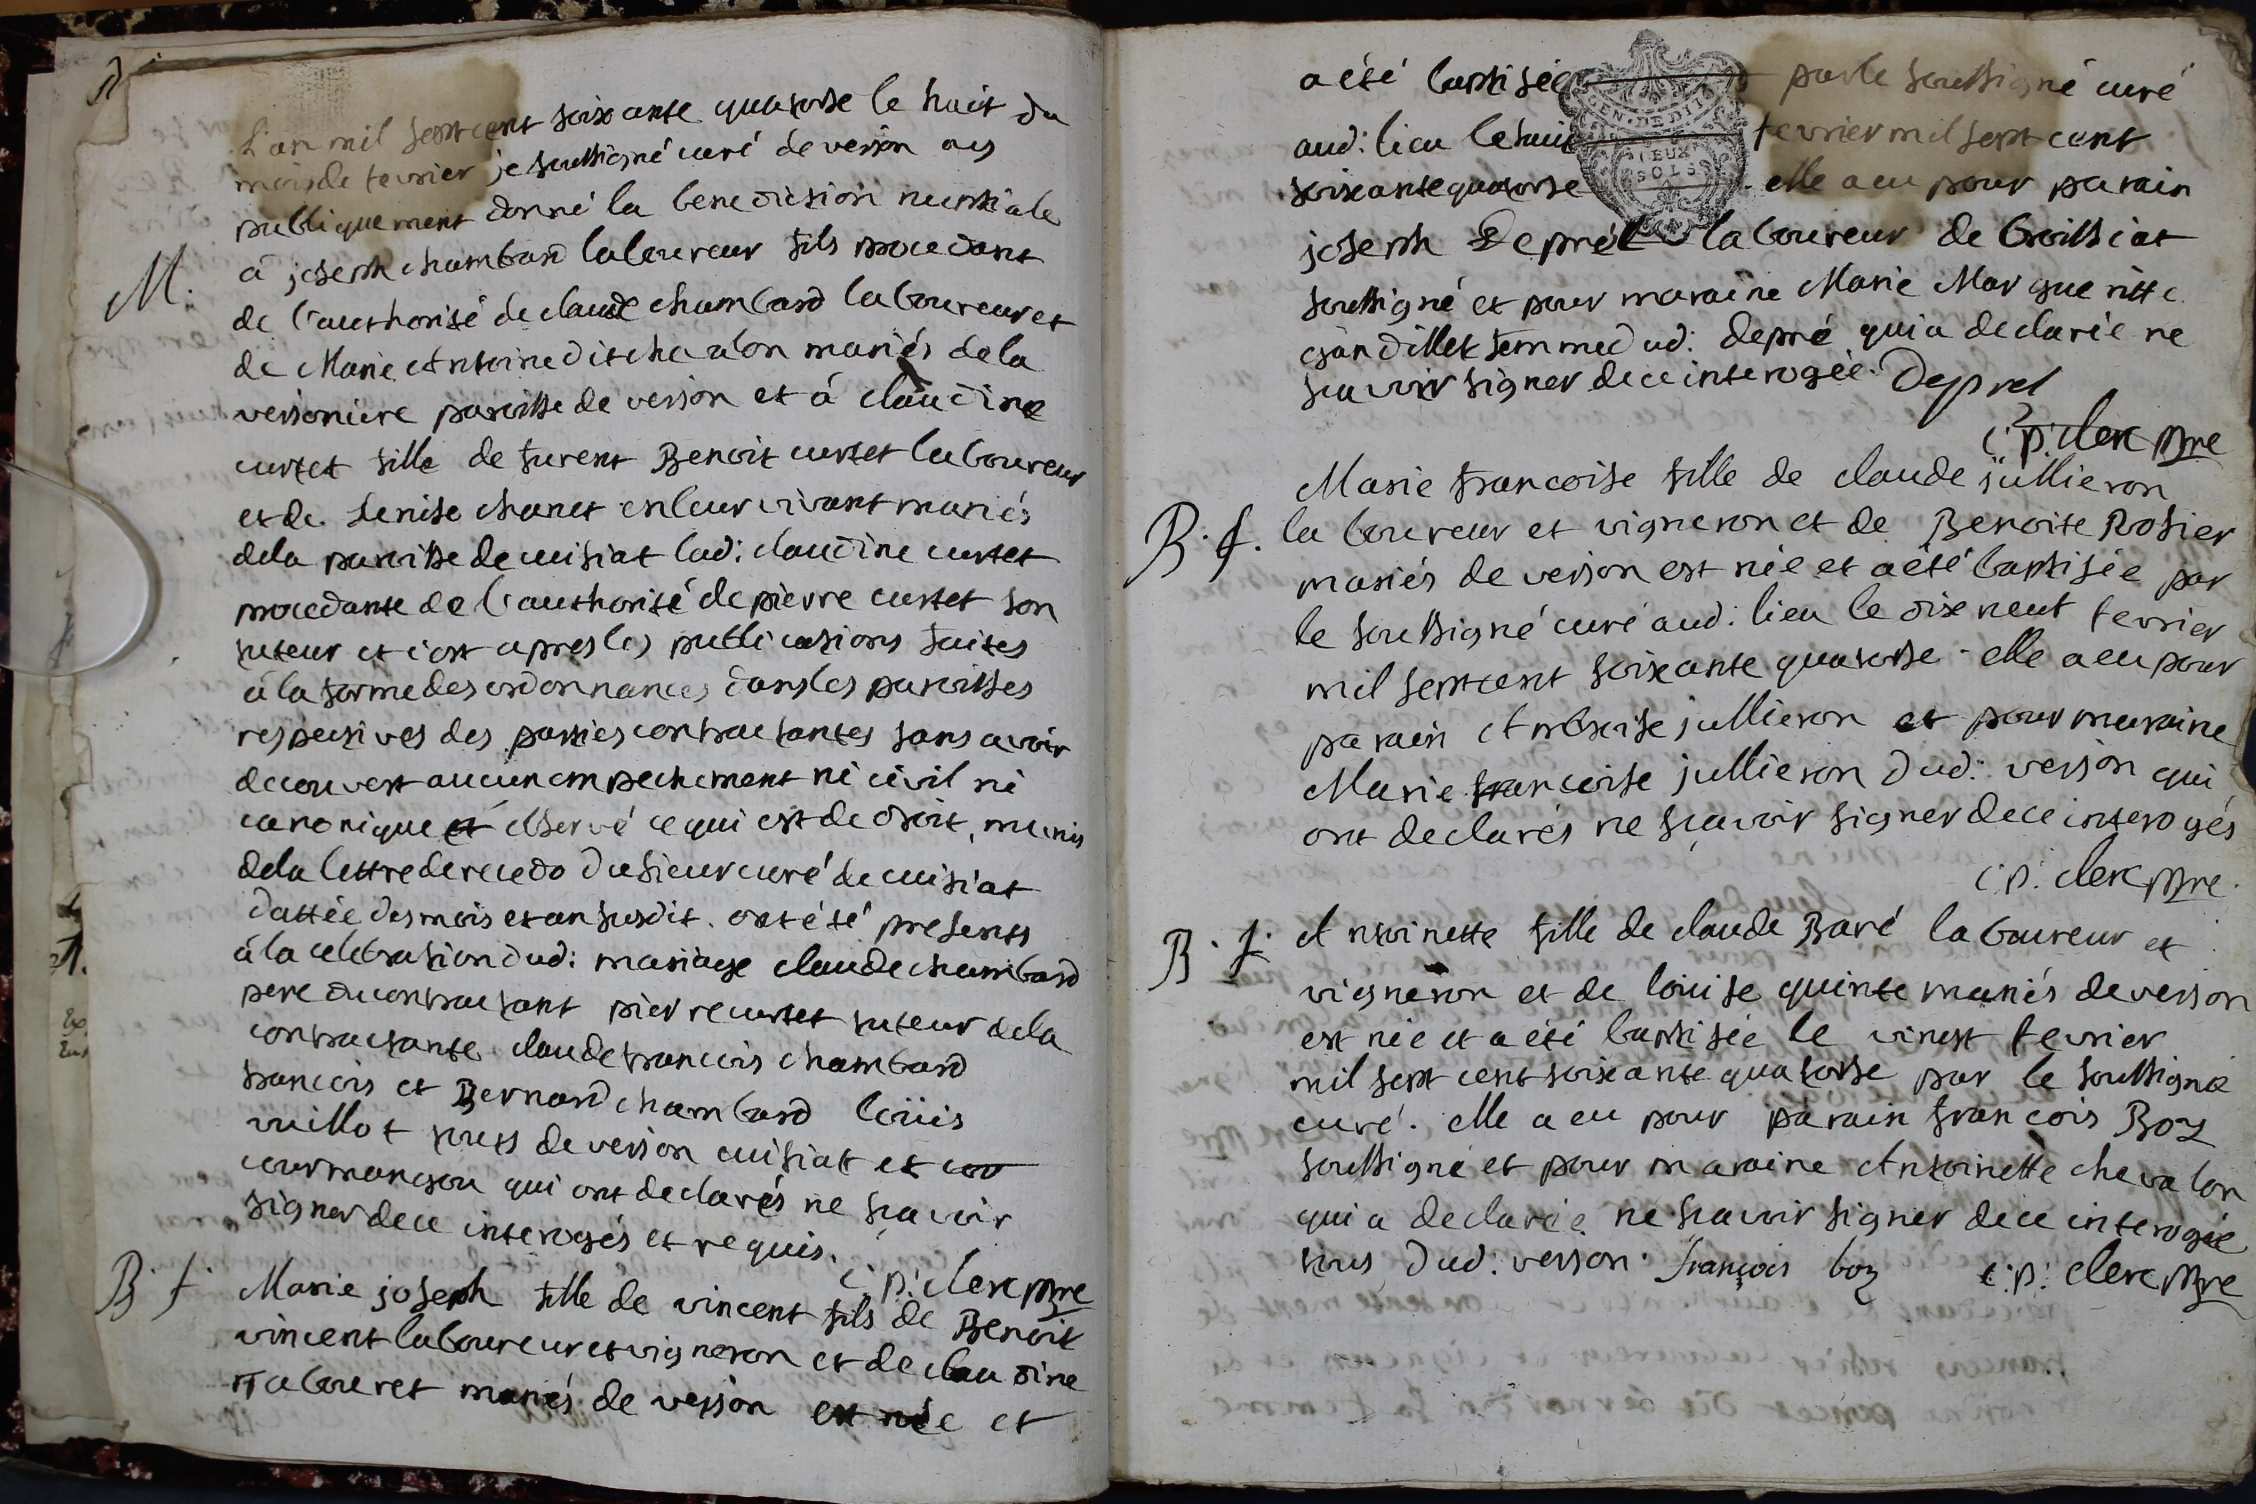 L'an mil sept cent soixante quatorse le huit du
mois de fevrier je soussigné curé de verson ais
publiquement donné la benediction nuptiale
M.
à joseph chambard laboureur fils procedant
de l'authorité de claude chambard laboureur et
de Marie Antoine dit chevalon mariés de la
versoniere paroisse de verson et á claudine
curtet fille de furent Benoit curtet laboureur
et de Denise chanet en leur vivant mariés
de la paroisse de cuisiat lad: claudine curtet
procedante de l'authorité de pierre curtet son
tuteur et c'est apres les publications faites
à la forme des ordonnances dans les paroisses
respectives des parties contractantes sans avoir
decouvert aucun empechement ni civil ni
canonique et observé ce qui est de droit, munis
de la lettre de recedo du sieur curé de cuisiat
dattée des mois et an susdit. ont été presents
á la celebration dud: mariage claude chambard
pere du contractant pierre curtet tuteur de la
contractante claude francois chambard
francois et Bernard chambard loüis
vuillot touts de verson cuisiat et cor
cormangou qui ont declarés ne scavoir
signer de ce interogés et requis.
c: p: clerc ptre
B. f
Marie joseph fille de vincent fils de Benoit
vincent laboureur et vigneron et de claudine
Tabouret mariés de verson est née et
a été baptisée par le soussigné curé
aud: lieu le huit fevrier mil sept cent
soixante quatorse elle a eu pour parain
joseph Deprét laboureur de broissiat
soussigné et pour maraine Marie Margueritte
gandillet femme dud: depré qui a declarée ne
scavoir signer de ce interogée. Deprel
c: p: clerc ptre
Marie francoise fille de claude jullieron
B. f.
laboureur et vigneron et de Benoite Rosier
mariés de verson est née et a été baptisée par
le soussigné curé aud: lieu le dix neuf fevrier
mil sept cent soixante quatorse. elle a eu pour
parain Ambroise jullieron et pour maraine
Marie francoise jullieron dud: verson qui
ont declarés ne sçavoir signer de ce interogés
c: p: clerc ptre.
B. f.
Antoinette fille de claude Baré laboureur et
vigneron et de louise quinte mariés de verson
est née et a été baptisée le vingt fevrier
mil sept cent soixante quatorse par le soussigné
curé. elle a eu pour parain francois Boz
soussigné et pour maraine Antoinette chevalon
qui a declarée ne scavoir signer de ce interogée
tous dud: verson. françois boz c: p: clerc ptre
GEN. DE DI
DEUX
SOLS